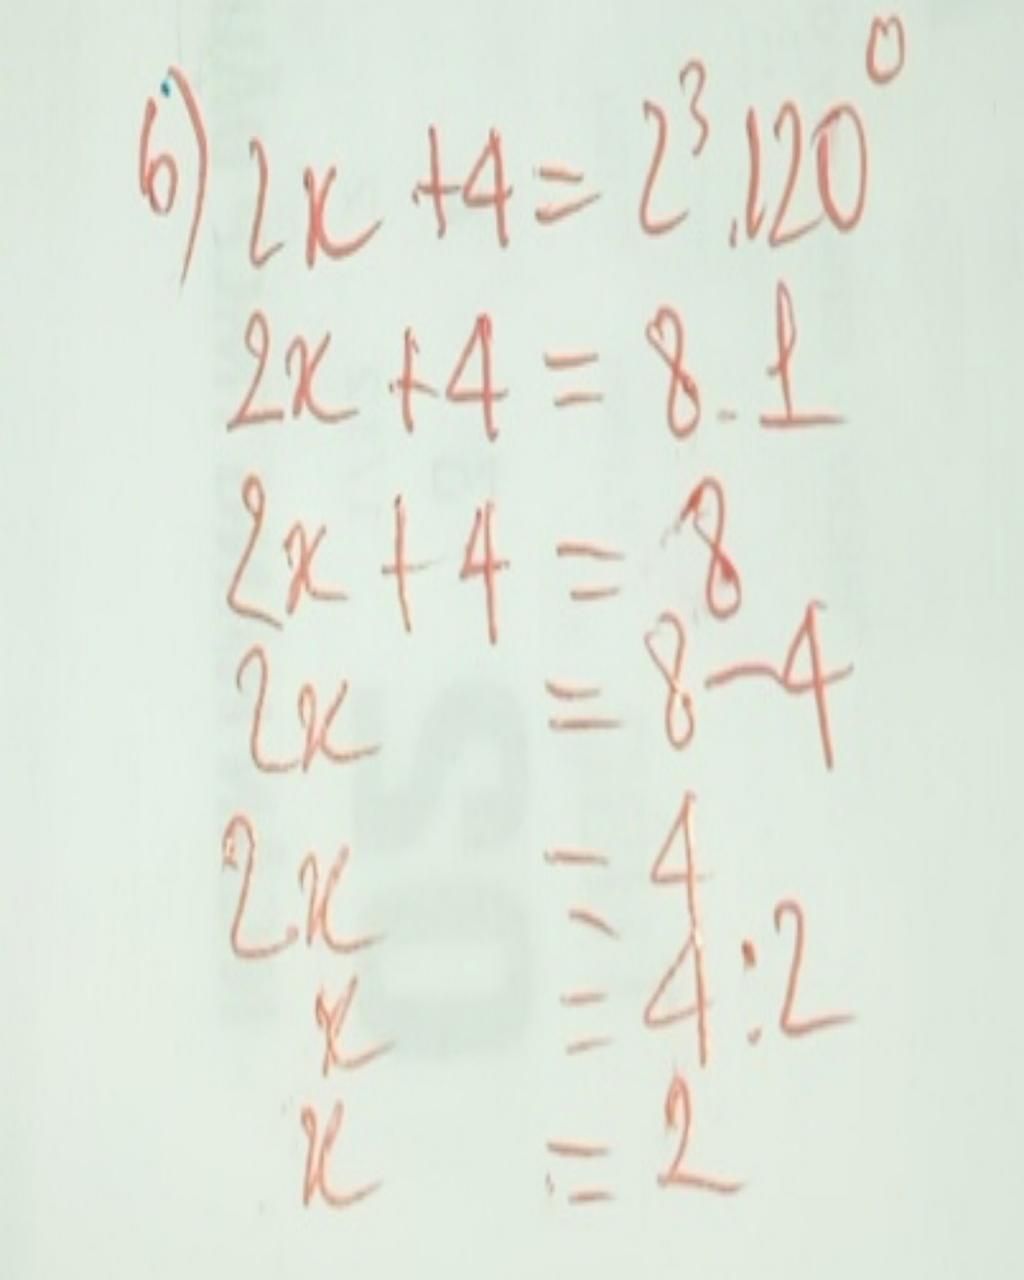 6) 2x + 4 = 2³.120⁰
2x + 4 = 8.1
2x + 4 = 8
2x = 8 - 4
2x = 4
x = 4 : 2
x = 2